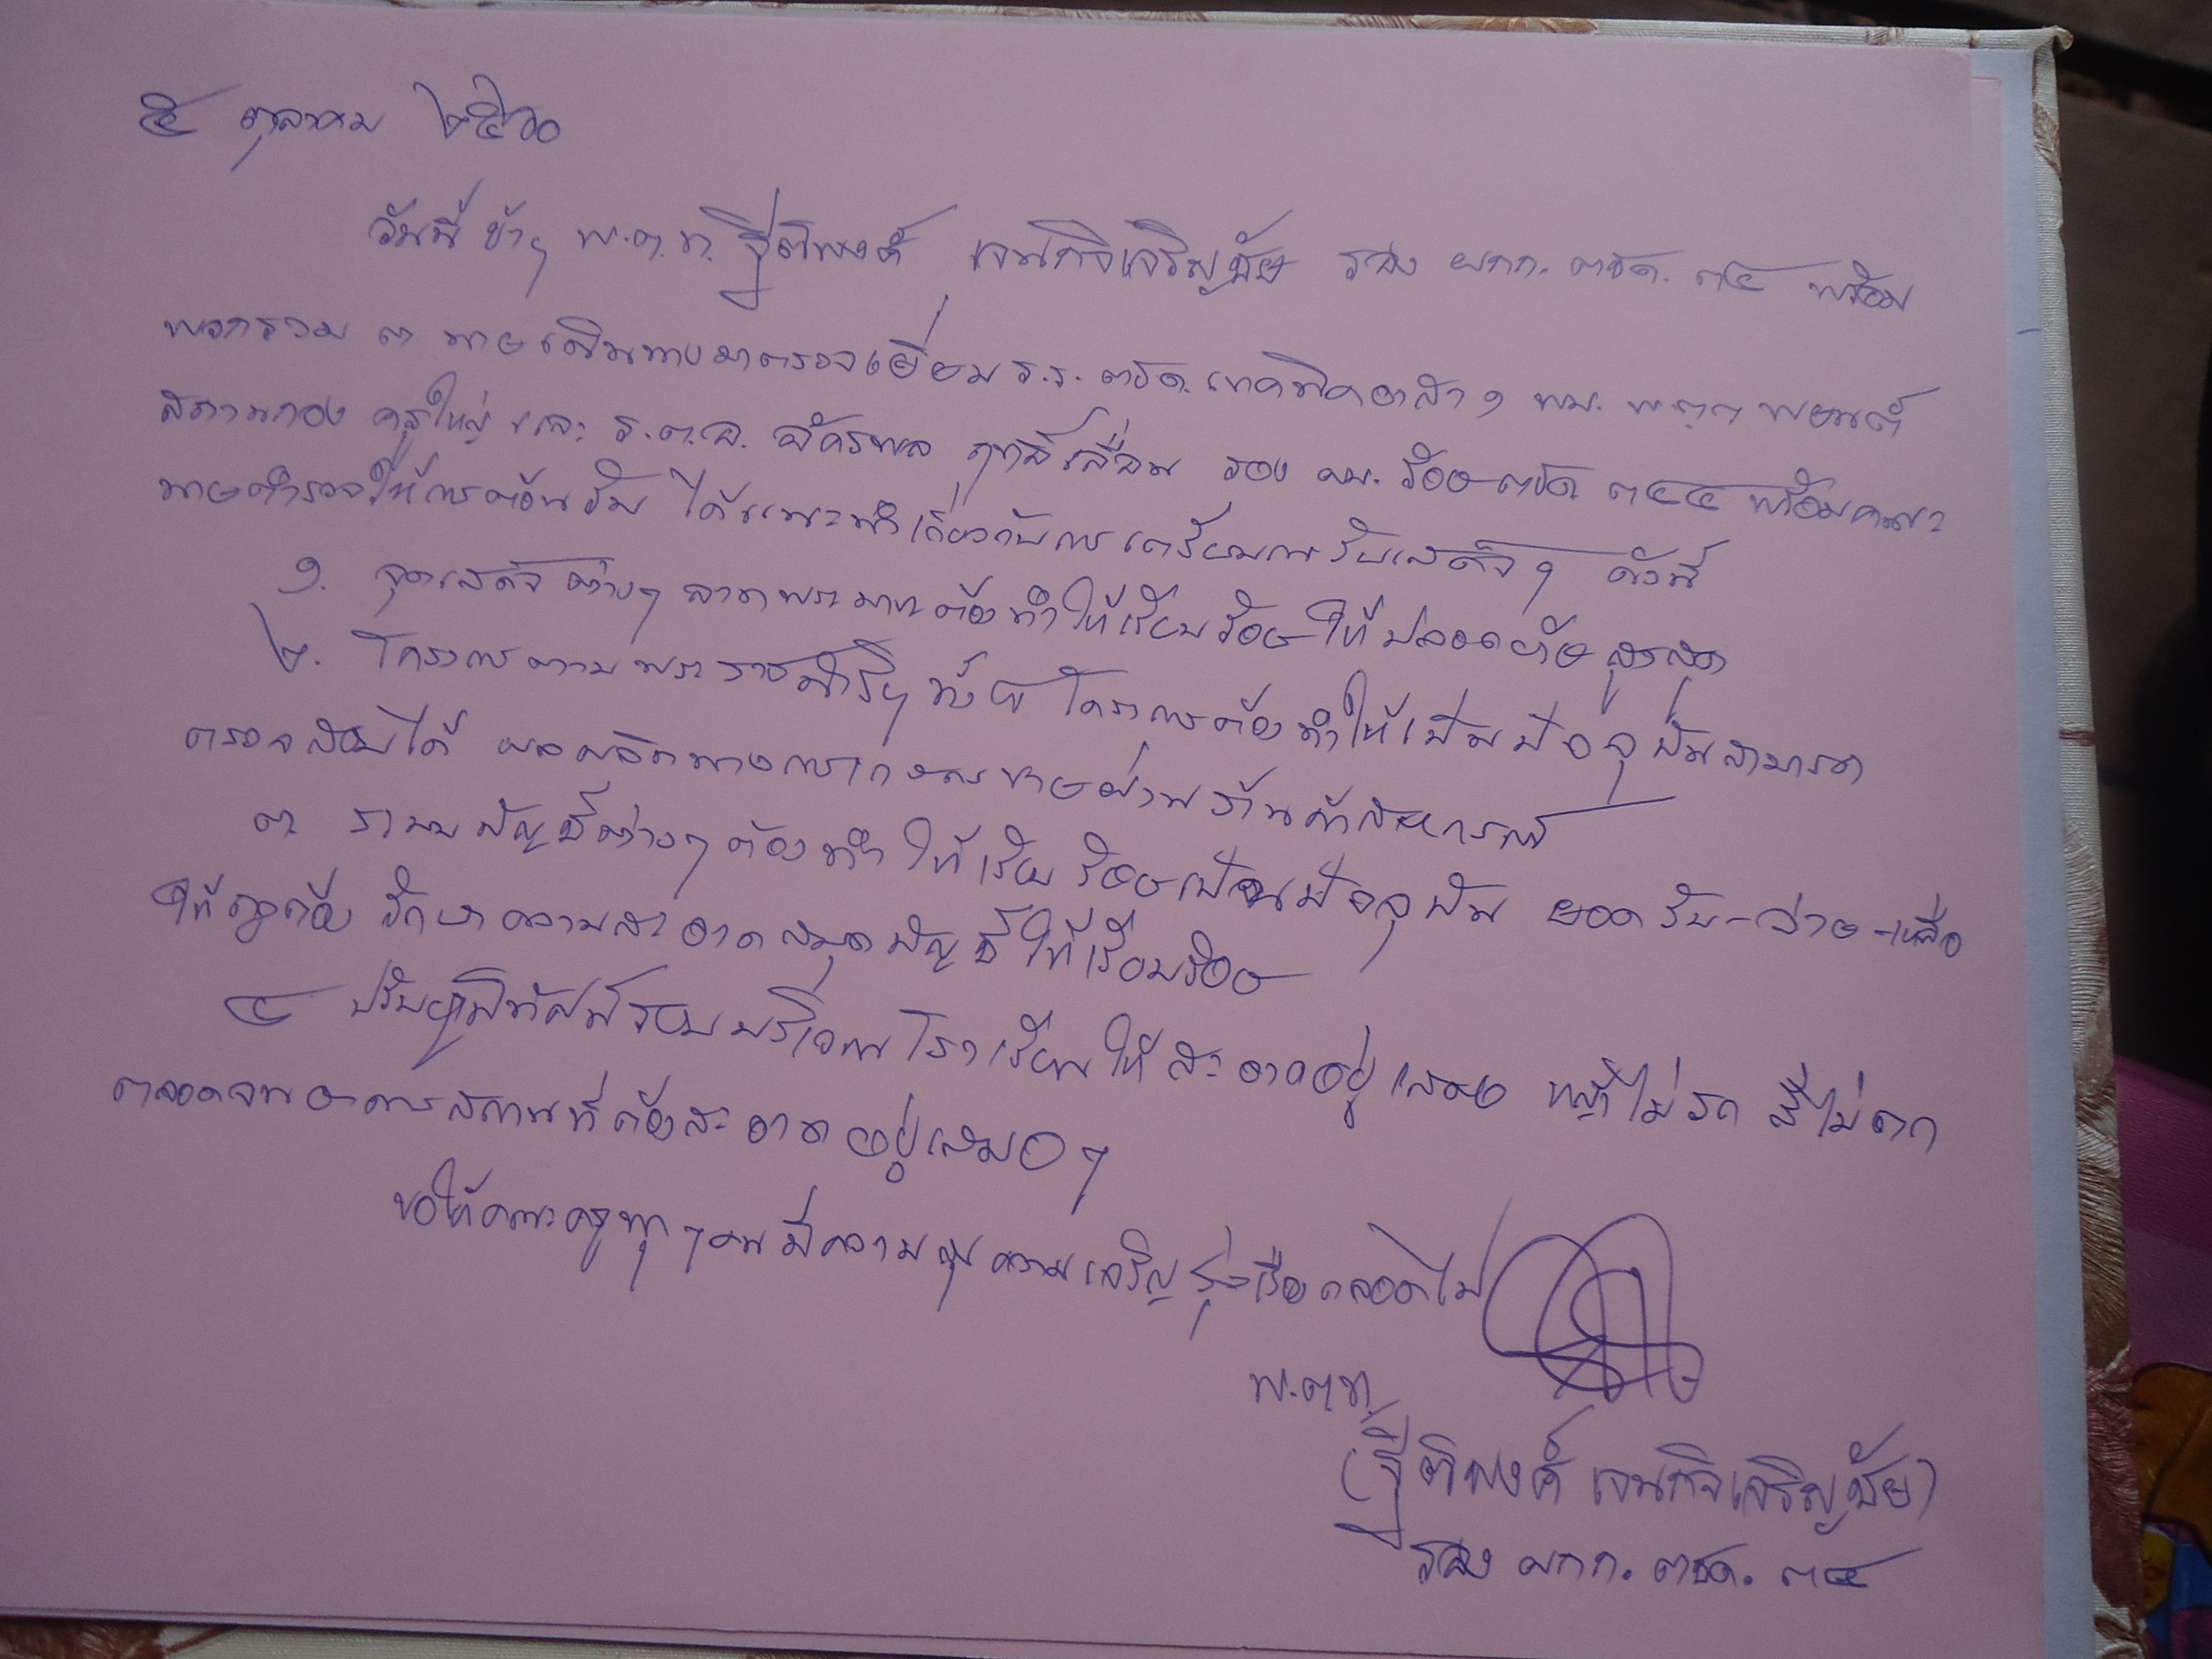 ๕ ตุลาคม ๒๕๖๐
วันนี้ ข้าฯ พ.ต.ท. ฐิติพงศ์ เจนกิจเจริญชัย รอง ผกก. ตชด. ๓๔ พร้อม
พวกรวม ๓ นายเดินทางมาตรวจเยี่ยม ร.ร. ตชด. เทคนิคอาสา ๑ พบ. พ.ต.ต.
สถานกอง ครูใหญ่ และ ร.ต.อ. อัครพล รอง ผบ. ร้อย ตชด ๓๔๔ พร้อมคณะ
นายตำรวจให้การต้อนรับ ได้แนะนำเกี่ยวกับการเตรียมการรับเสด็จฯ ดังนี้
๑. จุดเสด็จต่างๆ ลาดพระบาทต้องทำให้เรียบร้อยให้ปลอดภัยสูงสุด
๒. โครงการตามพระราชดำริฯ ทั้ง ๘ โครงการต้องทำให้เป็นปัจจุบันสามารถ
ตรวจสอบได้ ผลผลิตทางการเกษตรขายผ่านร้านค้าสหกรณ์
๓. ระบบบัญชีต่างๆ ต้องทำให้เรียบร้อยเป็นปัจจุบัน ยอดรับ-จ่าย-เหลือ
ให้ถูกต้อง รักษาความสะอาดสมุดบัญชีให้เรียบร้อย
๔ ปรับภูมิทัศน์รอบบริเวณโรงเรียนให้สะอาดอยู่เสมอ หญ้าไม่รก สีไม่ตก
ตลอดจนอาคารสถานที่ต้องสะอาดอยู่เสมอๆ
ขอให้คณะครูทุกๆคนมีความสุขความเจริญรุ่งเรืองตลอดไป
พ.ต.ท.
(ฐิติพงศ์ เจนกิจเจริญชัย)
รอง ผกก. ตชด. ๓๔